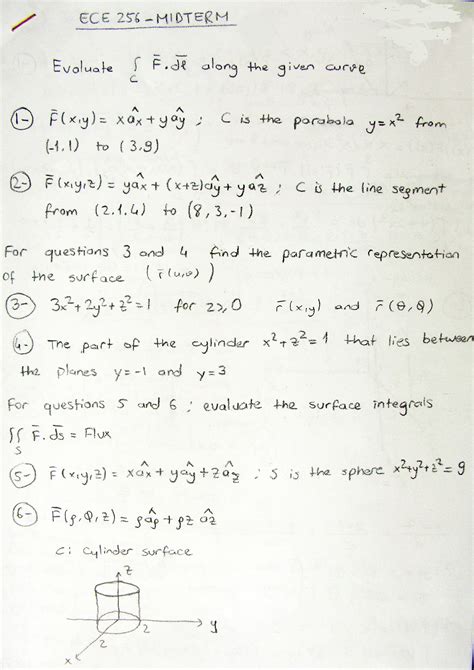 ECE 256-MIDTERM
Evaluate ∫ F̄.dl̄ along the given curve
C
1-) F̄(x,y) = xâx + yây ; C is the parabola y=x² from
(-1,1) to (3,9)
2-) F̄(x,y,z) = yâx + (x+z)ây + yâz ; C is the line segment
from (2,1,4) to (8,3,-1)
For questions 3 and 4 find the parametric representation
of the surface (r̄(u,v))
3-) 3x²+2y²+z²=1 for z≥0 r̄(x,y) and r̄(θ,Φ)
4-) The part of the cylinder x²+z²=1 that lies between
the planes y=-1 and y=3
For questions 5 and 6 ; evaluate the surface integrals
∬ F̄.ds̄ = Flux
S
5-) F̄(x,y,z) = xâx + yây + zâz ; S is the sphere x²+y²+z²=9
6-) F̄(ρ,Φ,z) = ρâρ + ρz âz
C: cylinder surface
z
y
2
2
x